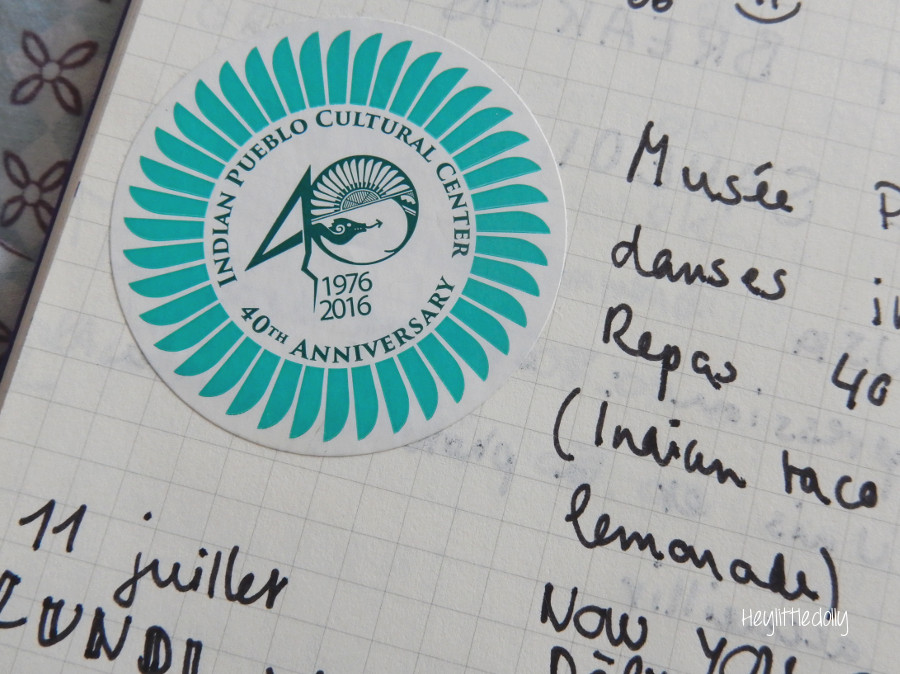 INDIAN PUEBLO CULTURAL CENTER
40
1976
2016
40TH ANNIVERSARY
Musée
danses
Repas 40
(Indian taco
lemonade)
11 juillet
LUNDI
NOW YOU
Heylittledolly